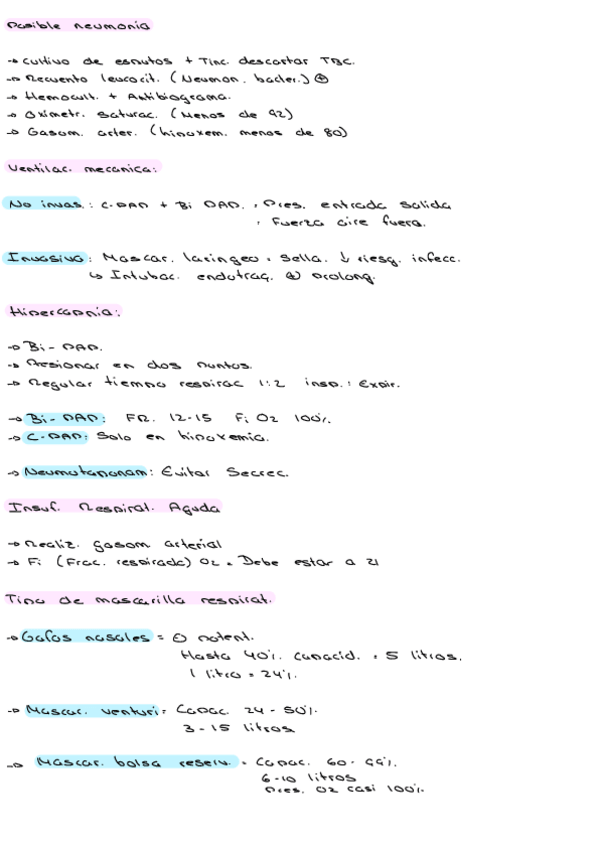 Posible neumonia
→ Cultivo de esputos + Tinc. descartar TBC.
→ Recuento leucocit. (Neumon. bacter.) ⊕
→ Hemocult. + Antibiograma.
→ Oximetr. saturac. (Menos de 92)
→ Gasom. arter. (hipoxem. menos de 80)
Ventilac. mecanica:
No invas.: C-PAP + Bi PAP. · Pres. entrada salida
· Fuerza aire fuera.
Invasiva: Mascar. laringea · Sella. ↓ riesg. infecc.
↳ Intubac. endotraq. ⊕ prolong.
Hipercapnia:
→ Bi-PAP.
→ Presionar en dos puntos.
→ Regular tiempo respirac 1:2 insp.: Expir.
→ Bi-PAP: FR. 12-15 Fi O2 100%.
→ C-PAP: Solo en hipoxemia.
→ Neumotaponam: Evitar Secrec.
Insuf. Respirat. Aguda
→ Realiz. gasom arterial
→ Fi (Frac. respirada) O2 = Debe estar a 21
Tipo de mascarilla respirat.
→ Gafas nasales = ⊖ potent.
Hasta 40% capacid. = 5 litros.
1 litro = 24%.
→ Mascar. venturi = Capac. 24 - 50%.
3 - 15 litros
→ Mascar. bolsa reserv. = Capac. 60 - 99%.
6-10 litros
Pres. O2 casi 100%.